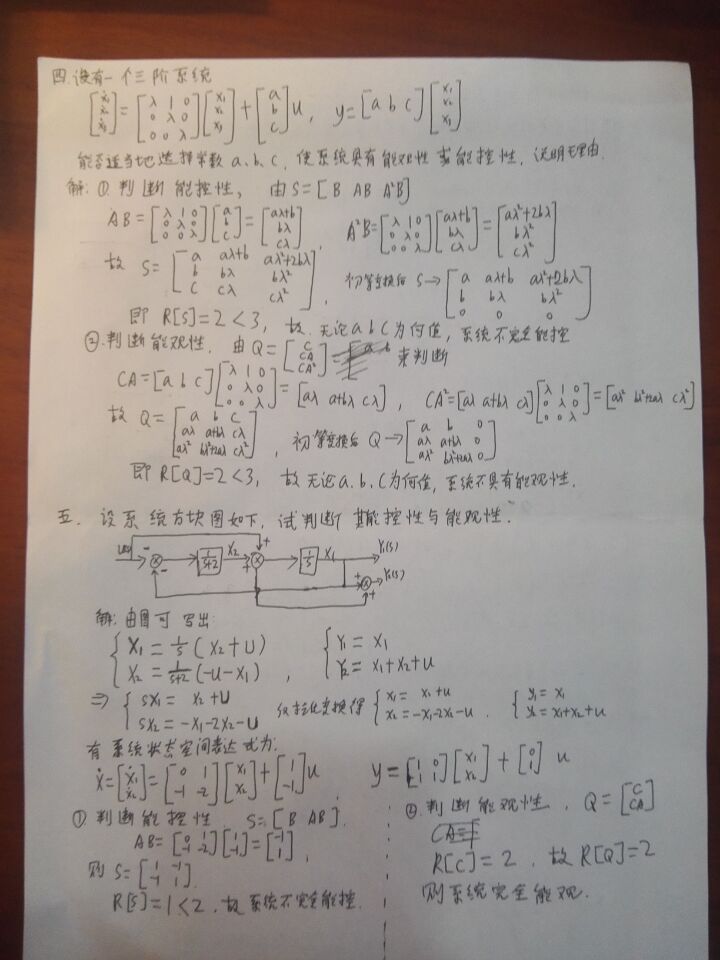 四.设有一个三阶系统
[ẋ₁ ẋ₂ ẋ₃] = [λ 1 0; 0 λ 0; 0 0 λ][x₁ x₂ x₃] + [a b c]u, y=[a b c][x₁ x₂ x₃]
能否适当地选择常数 a、b、c, 使系统具有能观性或能控性, 说明理由.
解: ① 判断能控性, 由S=[B AB A²B]
AB=[λ 1 0; 0 λ 0; 0 0 λ][a b c]=[aλ+b; bλ; cλ], A²B=[λ 1 0; 0 λ 0; 0 0 λ][aλ+b; bλ; cλ]=[aλ²+2bλ; bλ²; cλ²]
故 S=[a aλ+b aλ²+2bλ; b bλ bλ²; c cλ cλ²], 初等变换后 S→[a aλ+b aλ²+2bλ; b bλ bλ²; 0 0 0]
即 R[S]=2<3, 故.无论a b c为何值, 系统不完全能控
②.判断能观性. 由Q=[C CA CA²] 来判断
CA=[a b c][λ 1 0; 0 λ 0; 0 0 λ]=[aλ a+bλ cλ], CA²=[aλ a+bλ cλ][λ 1 0; 0 λ 0; 0 0 λ]=[aλ² bλ²+2aλ cλ²]
故 Q=[a b c; aλ a+bλ cλ; aλ² bλ²+2aλ cλ²], 初等变换后 Q→[a b 0; aλ a+bλ 0; aλ² bλ²+2aλ 0]
即 R[Q]=2<3, 故无论a.b.c为何值, 系统不具有能观性.
五. 设系统方块图如下, 试判断其能控性与能观性.
U(s) - - 1/s+2 X₂ + + 1/s X₁ Y₁(s)
+ + Y₂(s)
解: 由图可写出:
{X₁=1/s(X₂+U) {Y₁=X₁
X₂=1/s+2(-U-X₁), Y₂=X₁+X₂+U
⇒ {sX₁=X₂+U 反拉氏变换得 {x₁=x₁+u {y₁=x₁
sX₂=-X₁-2X₂-U x₂=-x₁-2x₂-u. y₂=x₁+x₂+u
有系统状态空间表达式为:
ẋ=[ẋ₁ ẋ₂]=[0 1; -1 -2][x₁ x₂]+[1; -1]u, y=[1 0; 1 1][x₁ x₂]+[0; 1]u
① 判断能控性 S=[B AB].
AB=[0 1; -1 -2][1; -1]=[-1; 1],
则 S=[1 -1; -1 1].
R[S]=1<2. 故系统不完全能控.
②.判断能观性. Q=[C CA]
R[C]=2. 故R[Q]=2
则系统完全能观.